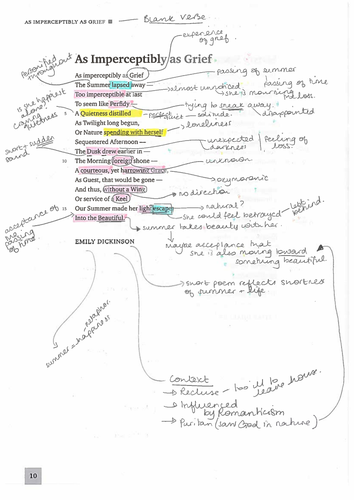 AS IMPERCEPTIBLY AS GRIEF
Blank Verse
experience of grief.
As Imperceptibly as Grief
Personified throughout
As imperceptibly as Grief
passing of summer
The Summer lapsed away —
almost unnoticed
passing of time
Too imperceptible at last
she is mourning
To seem like Perfidy —
trying to sneak away.
is she happiest alone?
A Quietness distilled
solitude.
disappointed
As Twilight long begun,
loneliness
Or Nature spending with herself
Sequestered Afternoon —
unexpected
darkness
feeling of loss
short sudden sound
The Dusk drew earlier in —
The Morning foreign shone —
unknown
A courteous, yet harrowing Grace,
oxymoronic
As Guest, that would be gone —
And thus, without a Wing
no direction
Or service of a Keel
natural?
15
Our Summer made her light escape
she could feel betrayed
left behind.
acceptance of the passing of time.
Into the Beautiful.
summer takes beauty with her
EMILY DICKINSON
Maybe acceptance that
she is also moving toward
something beautiful
short poem reflects shortness
of summer + life
metaphor
summer = happiness
Context
Recluse - too ill to leave house.
Influenced
by Romanticism
Puritan (saw God in nature)
10